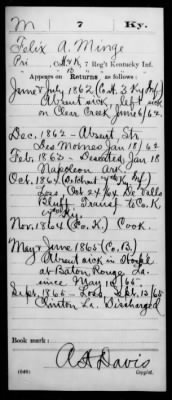 M | 7 | Ky.
Felix A. Minge
Pri., Co. K, 7 Reg't Kentucky Inf.
Appears on Returns as follows:
June & July 1862 (Co. K 3 Ky Inf)
Absent sick, left sick
on Clear Creek June 6/62.
Dec. 1862 - Absent. Str
Des Moines Jan 18/62
Feb. 1863 - Deserted, Jan 18
Napoleon Ark.
Oct. 1864 Ky Inf)
Loss Oct 24/64 De Valls
Bluff. Transf to Co. K
Ky.
Nov. 1864 (Co. K.) Cook.
May & June 1865 (Co. B.)
Absent sick in Hosp'l
at Baton Rouge La.
since May 18/65.
Sept. 1865 - Loss Sept. 15/65
Clinton La. Discharged
Book mark:
A A Davis
(646) Copyist.